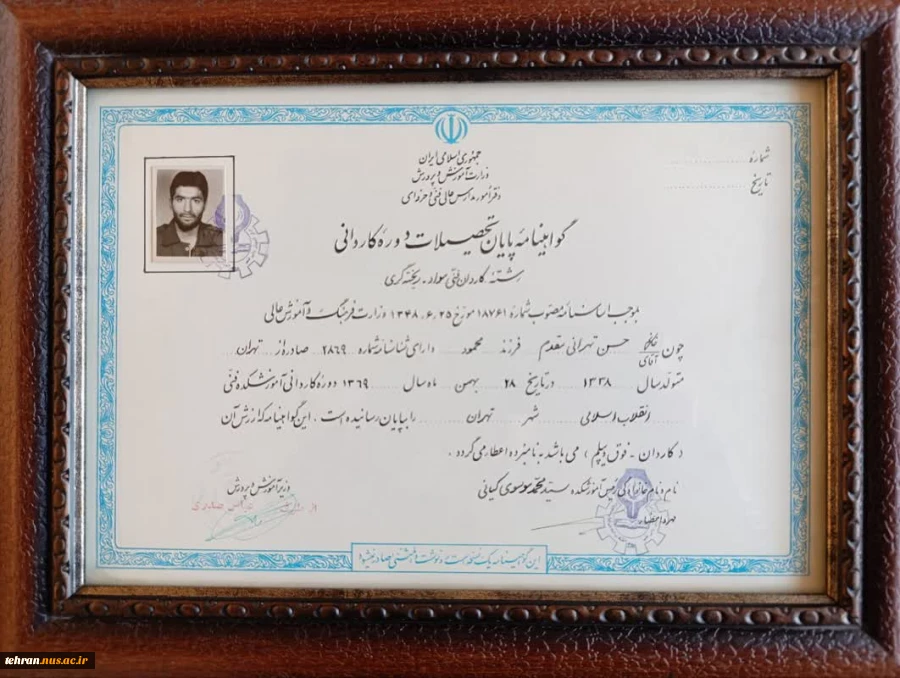 شمارهٔ
تاریخ
جمهوری اسلامی ایران
وزارت آموزش و پرورش
دفتر امور مدارس عالی فنی و حرفه‌ای
گواهینامهٔ پایان تحصیلات دورهٔ کاردانی
رشتهٔ کاردان فنی مواد - ریخته‌گری
بموجب اساسنامهٔ مصوب شمارهٔ ۱۸۷۶۱ مورخ ۱۳۴۸.۶.۲۵ وزارت فرهنگ و آموزش عالی
چون خانم آقای حسن تهرانی مقدم فرزند محمود دارای شناسنامه شماره ۲۸۶۹ صادره از تهران
متولد سال ۱۳۳۸ در تاریخ ۲۸ بهمن ماه سال ۱۳۶۹ دورهٔ کاردانی آموزشکده فنی
انقلاب اسلامی شهر تهران را بپایان رسانیده است . این گواهینامه که ارزش آن
( کاردان - فوق دیپلم ) می باشد به نامبرده اعطا می گردد .
نام و نام خانوادگی رئیس آموزشکده سید محمد موسوی کیانی
مهر و امضاء
وزیر آموزش و پرورش
از طرف عباس صدری
این گواهینامه یک نسخه است و رونوشت یا المثنی صادر نمیشود
tehran.nus.ac.ir